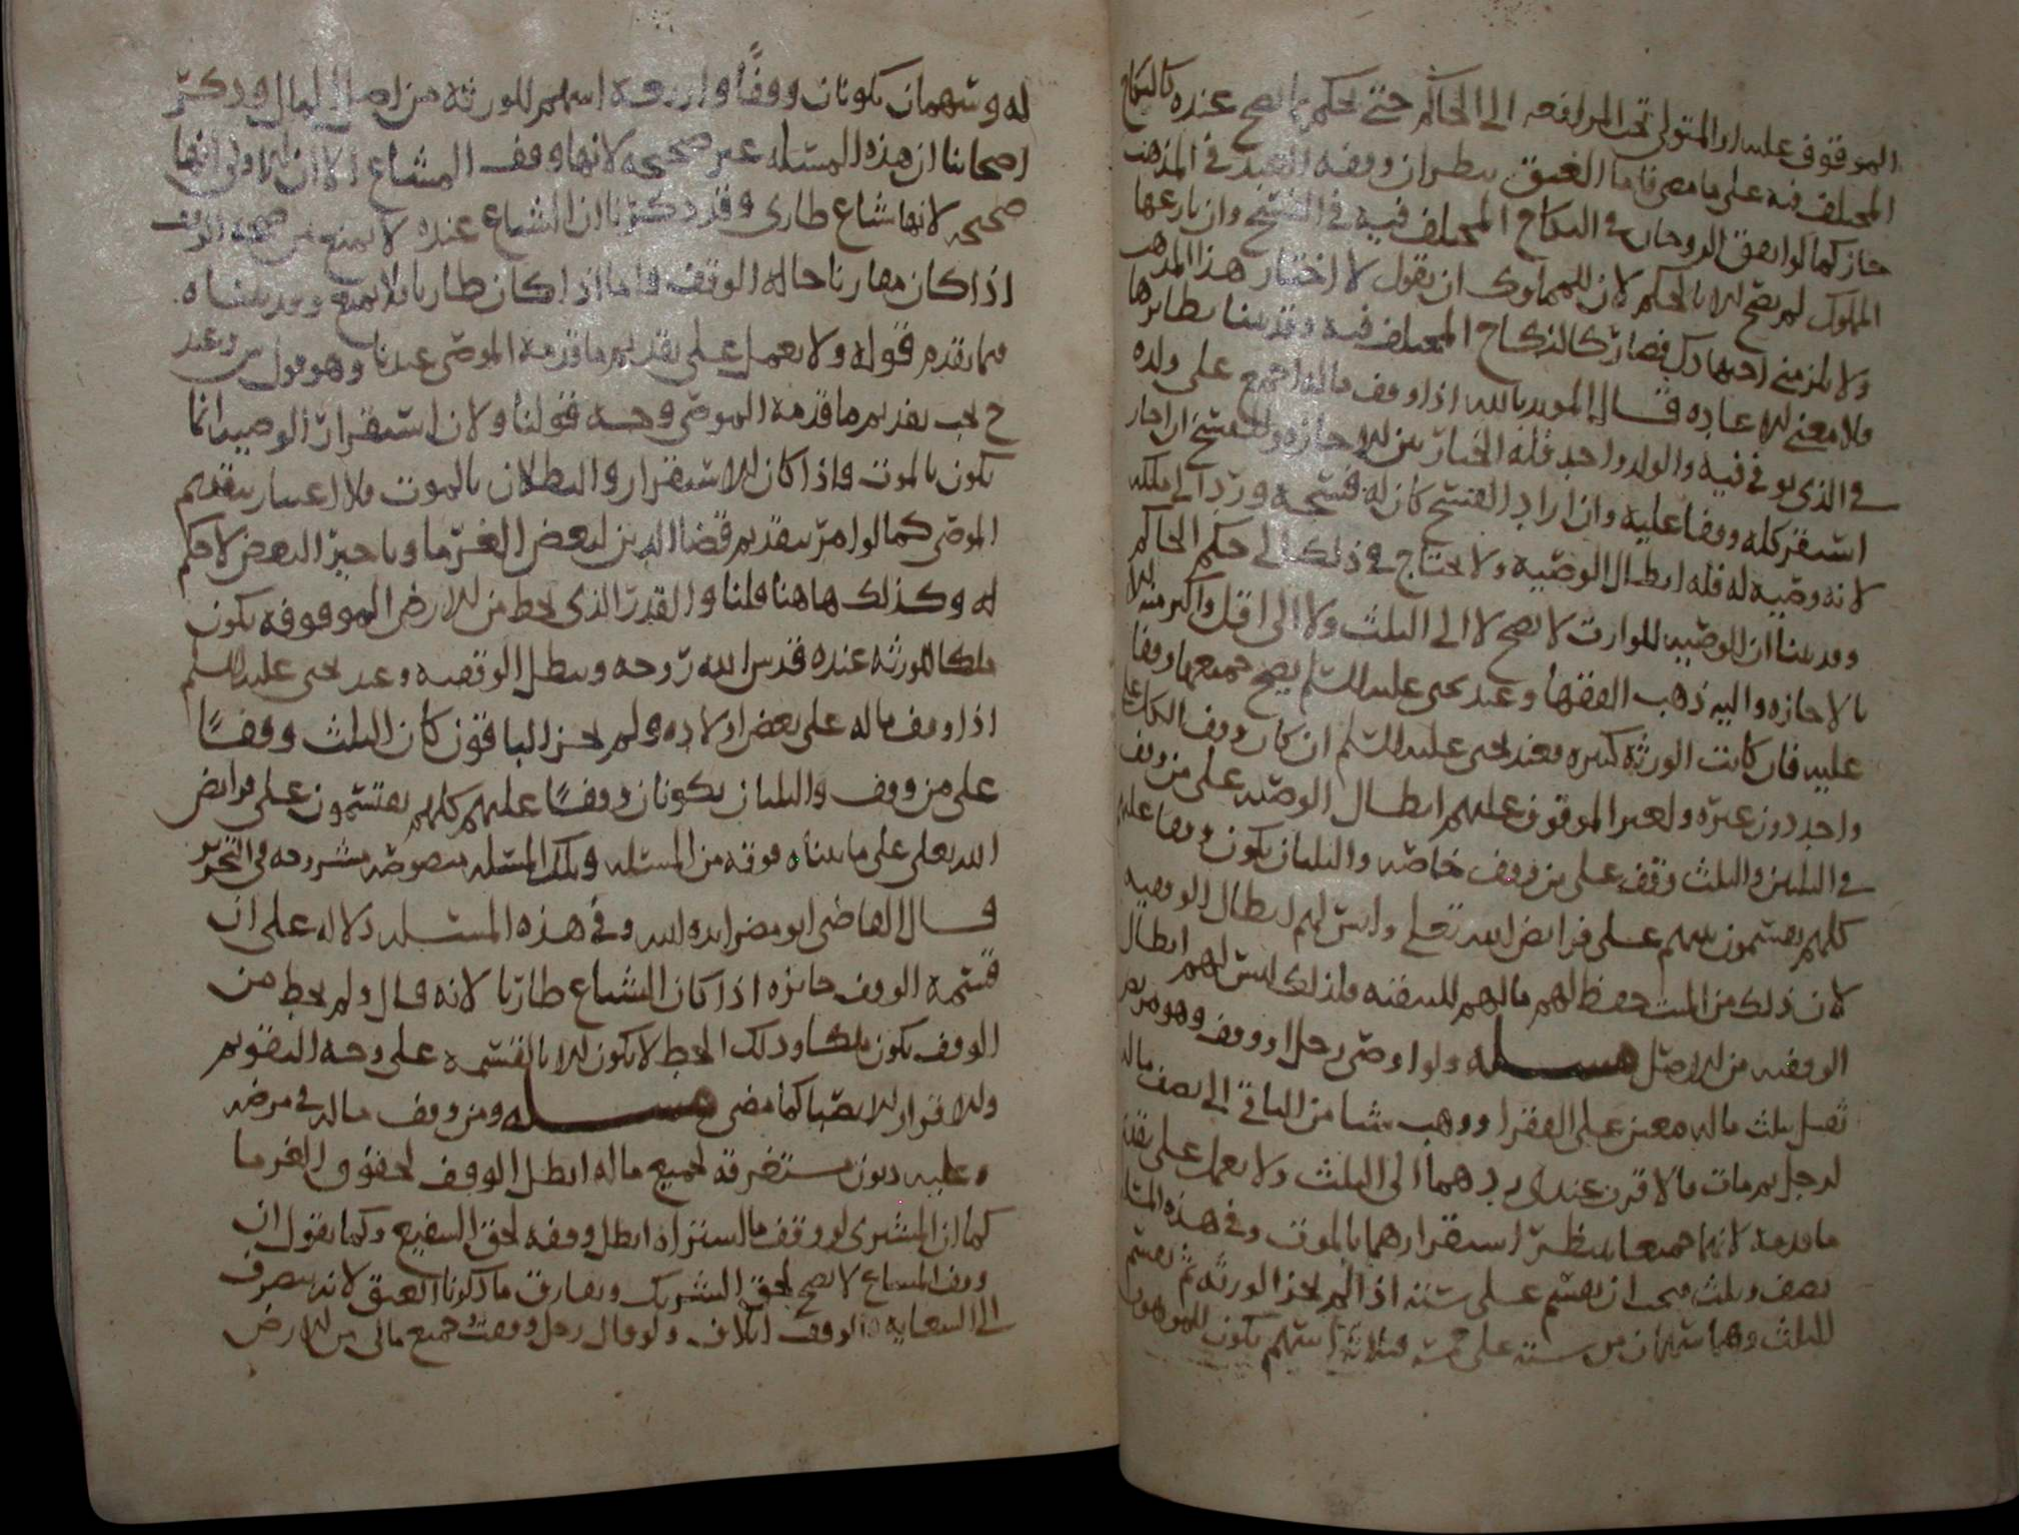 الموقوف عليه او المتولى تحت المرافعه الى الحاكم حتى يحكم بما يصح عنده كالنكاح
المختلف فيه على ما مضى فاما العتق ينظر ان وقفه العبد في المذهب
جاز كما لو اتفق الزوجان في النكاح المختلف فيه في الفسخ وان نازعها
المملوك لم يصح الا بالحكم لان للمملوك ان يقول لا اختار هذا المذهب
ولا يلزمني اجتهادك فصار كالنكاح المختلف فيه وقد بينا نظايرها
فلا معنى للاعاده قال المويد بالله اذا وقف ماله اجمع على ولده
في الذي توفي فيه والولد واحد فله الخيار بين الاجازه والفسخ ان اجاز
استقر كله وقفا عليه وان اراد الفسخ كان له فسخه ورد الى ملكه
لانه وصيه له فله ابطال الوصيه ولا يحتاج في ذلك الى حكم الحاكم
وقد بينا ان الوصيه للوارث لا تصح لا الى الثلث ولا الى اقل واكثر منه الا
بالاجازه واليه ذهب الفقها وعند يحى عليه السلم يصح جميعها وقفا
عليه فان كانت الورثه كثيره فعند يحى عليه السلم ان كان وقف الكل على
واحد دون غيره ولغير الموقوف عليهم ابطال الوصيه على من وقف
في الثلثين والثلث وقف على من وقف خاصه والثلثان يكون وقفا عليهم
كلهم يقتسمون بينهم على فرايض الله تعلى وليس لهم ابطال الوقفيه
لان ذلك من الميت حفظ لهم مالهم للنفقه فلذلك ليس لهم ابطال
الوقفيه من الاصل مسله ولو اوصى رجل او وقف وهو مريض
ثقيل ثلث ماله معين على الفقرا ووهب شيا من الباقي الى نصف ماله
لرجل ثم مات فالاقرب عندى يردهما الى الثلث ولا يعمل على تقديم
ما قدمه لانهما جميعا ينظر استقرارهما بالموت وفي هذه المسله
نصف وثلث فيجب ان يقسم على سته اذا لم يجز الورثه ثم يقسم
الثلث وهما سهمان من سته على خمسه فثلاثه اسهم يكون للموهوب
له وسهمان يكونان ووقفًا واربعه اسهم للورثه من اصل المال وذكر
اصحابنا ان هذه المسله غير صحيحه لانها وقف المشاع الا ان الاولى انها
صحيحه لانها شاع طارى وقد ذكرنا ان الشياع عنده لا يمنع من صحه الوقف
اذا كان مقارنا حاله الوقف فاما اذا كان طاريا فلا يمنع وقد بيناه
فيما تقدم قوله ولا يعمل على تقديم ما قدمه الموصى عندنا وهو قول ش وعند
ح يجب تقديم ما قدمه الموصى وجه قولنا ولان استقرار الوصيه انما
يكون بالموت فاذا كان الاستقرار والبطلان بالموت فلا اعتبار بتقديم
الموصى كما لو امر بتقديم قضا الدين لبعض الغرما وتاخير البعض لا حكم
له وكذلك هاهنا قلنا والقدر الذي يحط من الارض الموقوفه يكون
ملكا للورثه عنده قدس الله روحه ويبطل الوقفيه وعند يحى عليه السلم
اذا وقف ماله على بعض اولاده ولم يجز الباقون كان الثلث وقفًا
على من وقف والثلثان يكونان وقفًا عليهم كلهم يقتسمون على فرايض
الله تعلى على ما بيناه فوقه من المسله وتلك المسله منصوصه مشروحه في التحرير
قال القاضي ابو مضر ايده الله وفي هذه المسله دلاله على ان
قسمه الوقف جايزه اذا كان الشياع طاريا لانه قال ولم يحط من
الوقف يكون ملكا وذلك الحط لا يكون الا بالقسمه على وجه التقويم
وللاقرار للانصبا كما مضى مسله ومن وقف ماله في مرضه
وعليه ديون مستغرقه لجميع ماله ابطل الوقف لحقوق الغرما
كما ان المشترى لو وقف ما اشتراه ابطل وقفه لحق الشفيع وكما يقول ان
وقف المشاع لا يصح لحق الشريك ويفارق ما ذكرنا العتق لانه يتصرف
الى السعايه والوقف اتلاف ولو قال رجل وقفت جميع مالى من الارض